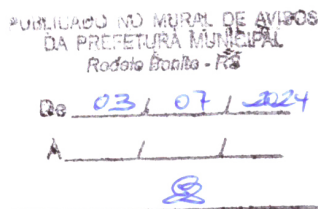 PUBLICADO NO MURAL DE AVISOS
DA PREFEITURA MUNICIPAL
Rodeio Bonito - RS
De 03 / 07 / 2024
A / /